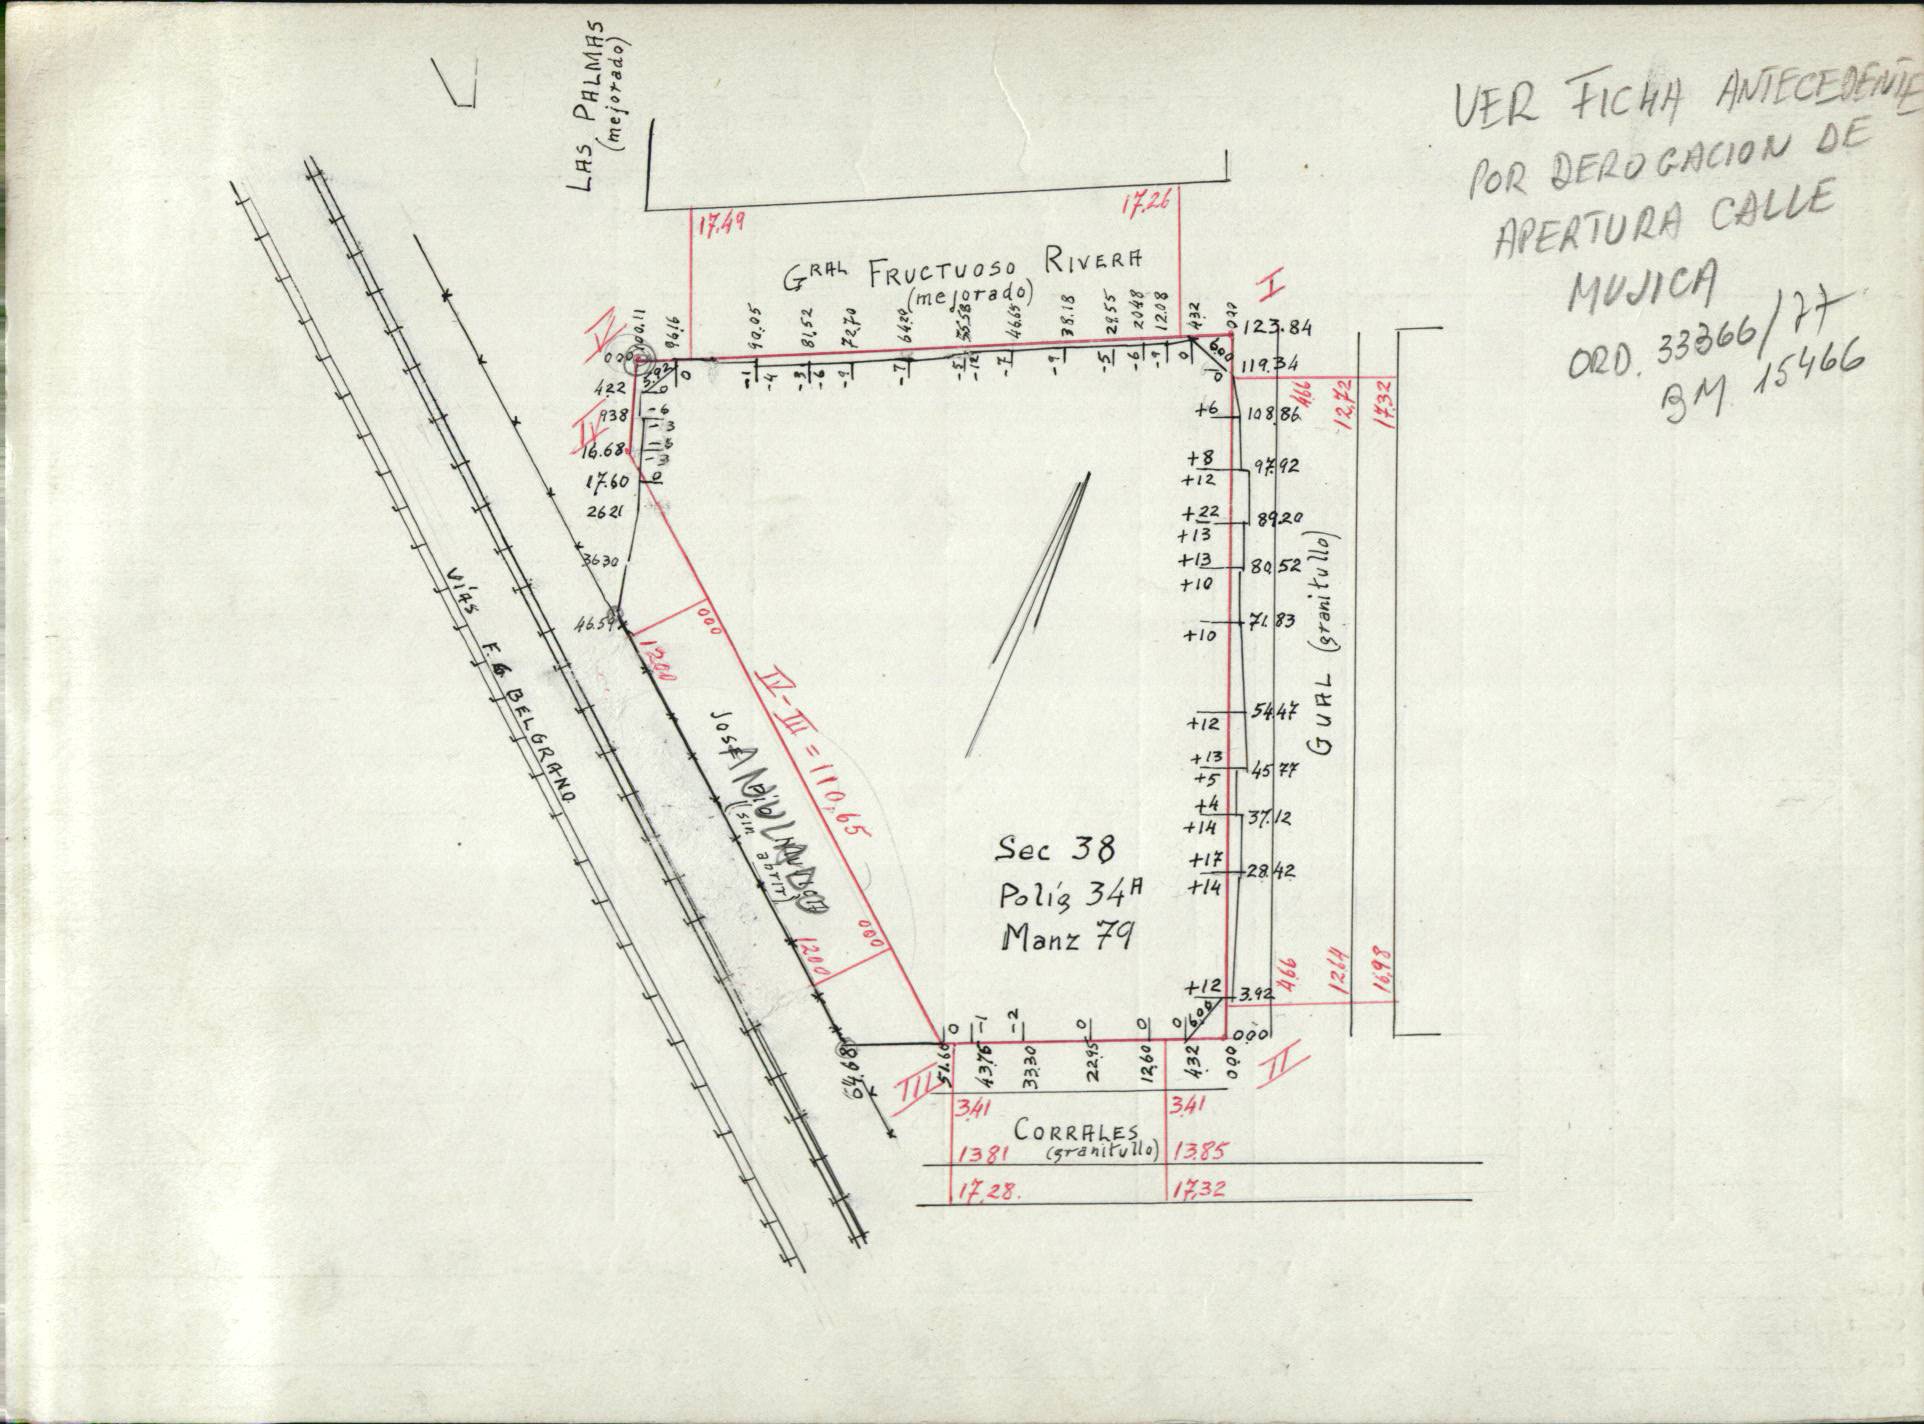 LAS PALMAS
(mejorado)
VER FICHA ANTECEDENTE
POR DEROGACION DE
APERTURA CALLE
MUJICA
ORD. 33366/77
BM 15466
17.49
17.26
GRAL FRUCTUOSO RIVERA
(mejorado)
I
96.16
90.05
81.52
72.70
64.20
55.58
46.65
38.18
29.55
20.48
12.08
4.32
0.00
123.84
0.00
-1
-4
-3
-6
-9
-7
-5
-12
-7
-9
-5
-6
-9
0
6.00
0
119.34
4.22
0
9.38
-6
-3
IV
16.68
-5
-3
17.60
0
26.21
36.30
46.59
+6
108.86
4.66
12.72
17.32
+8
97.92
+12
+22
89.20
+13
+13
80.52
+10
71.83
+10
54.47
+12
+13
45.77
+5
+4
37.12
+14
+17
28.42
+14
+12
3.92
6.00
0.00
GUAL (granitullo)
4.66
12.64
16.98
VÍAS F.G. BELGRANO
0.00
12.00
IV-III = 110,65
JOSÉ
(sin abrir)
0.00
12.00
Sec 38
Políg 34A
Manz 79
0
-1
-2
0
0
0
64.68
51.60
43.76
33.30
22.95
12.60
4.32
0.00
III
II
3.41
3.41
CORRALES
(granitullo)
13.81
13.85
17.28.
17.32